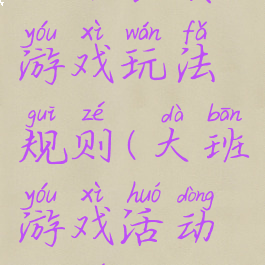 yóu xì wán fǎ
游戏玩法
guī zé dà bān
规则(大班
yóu xì huó dòng
游戏活动